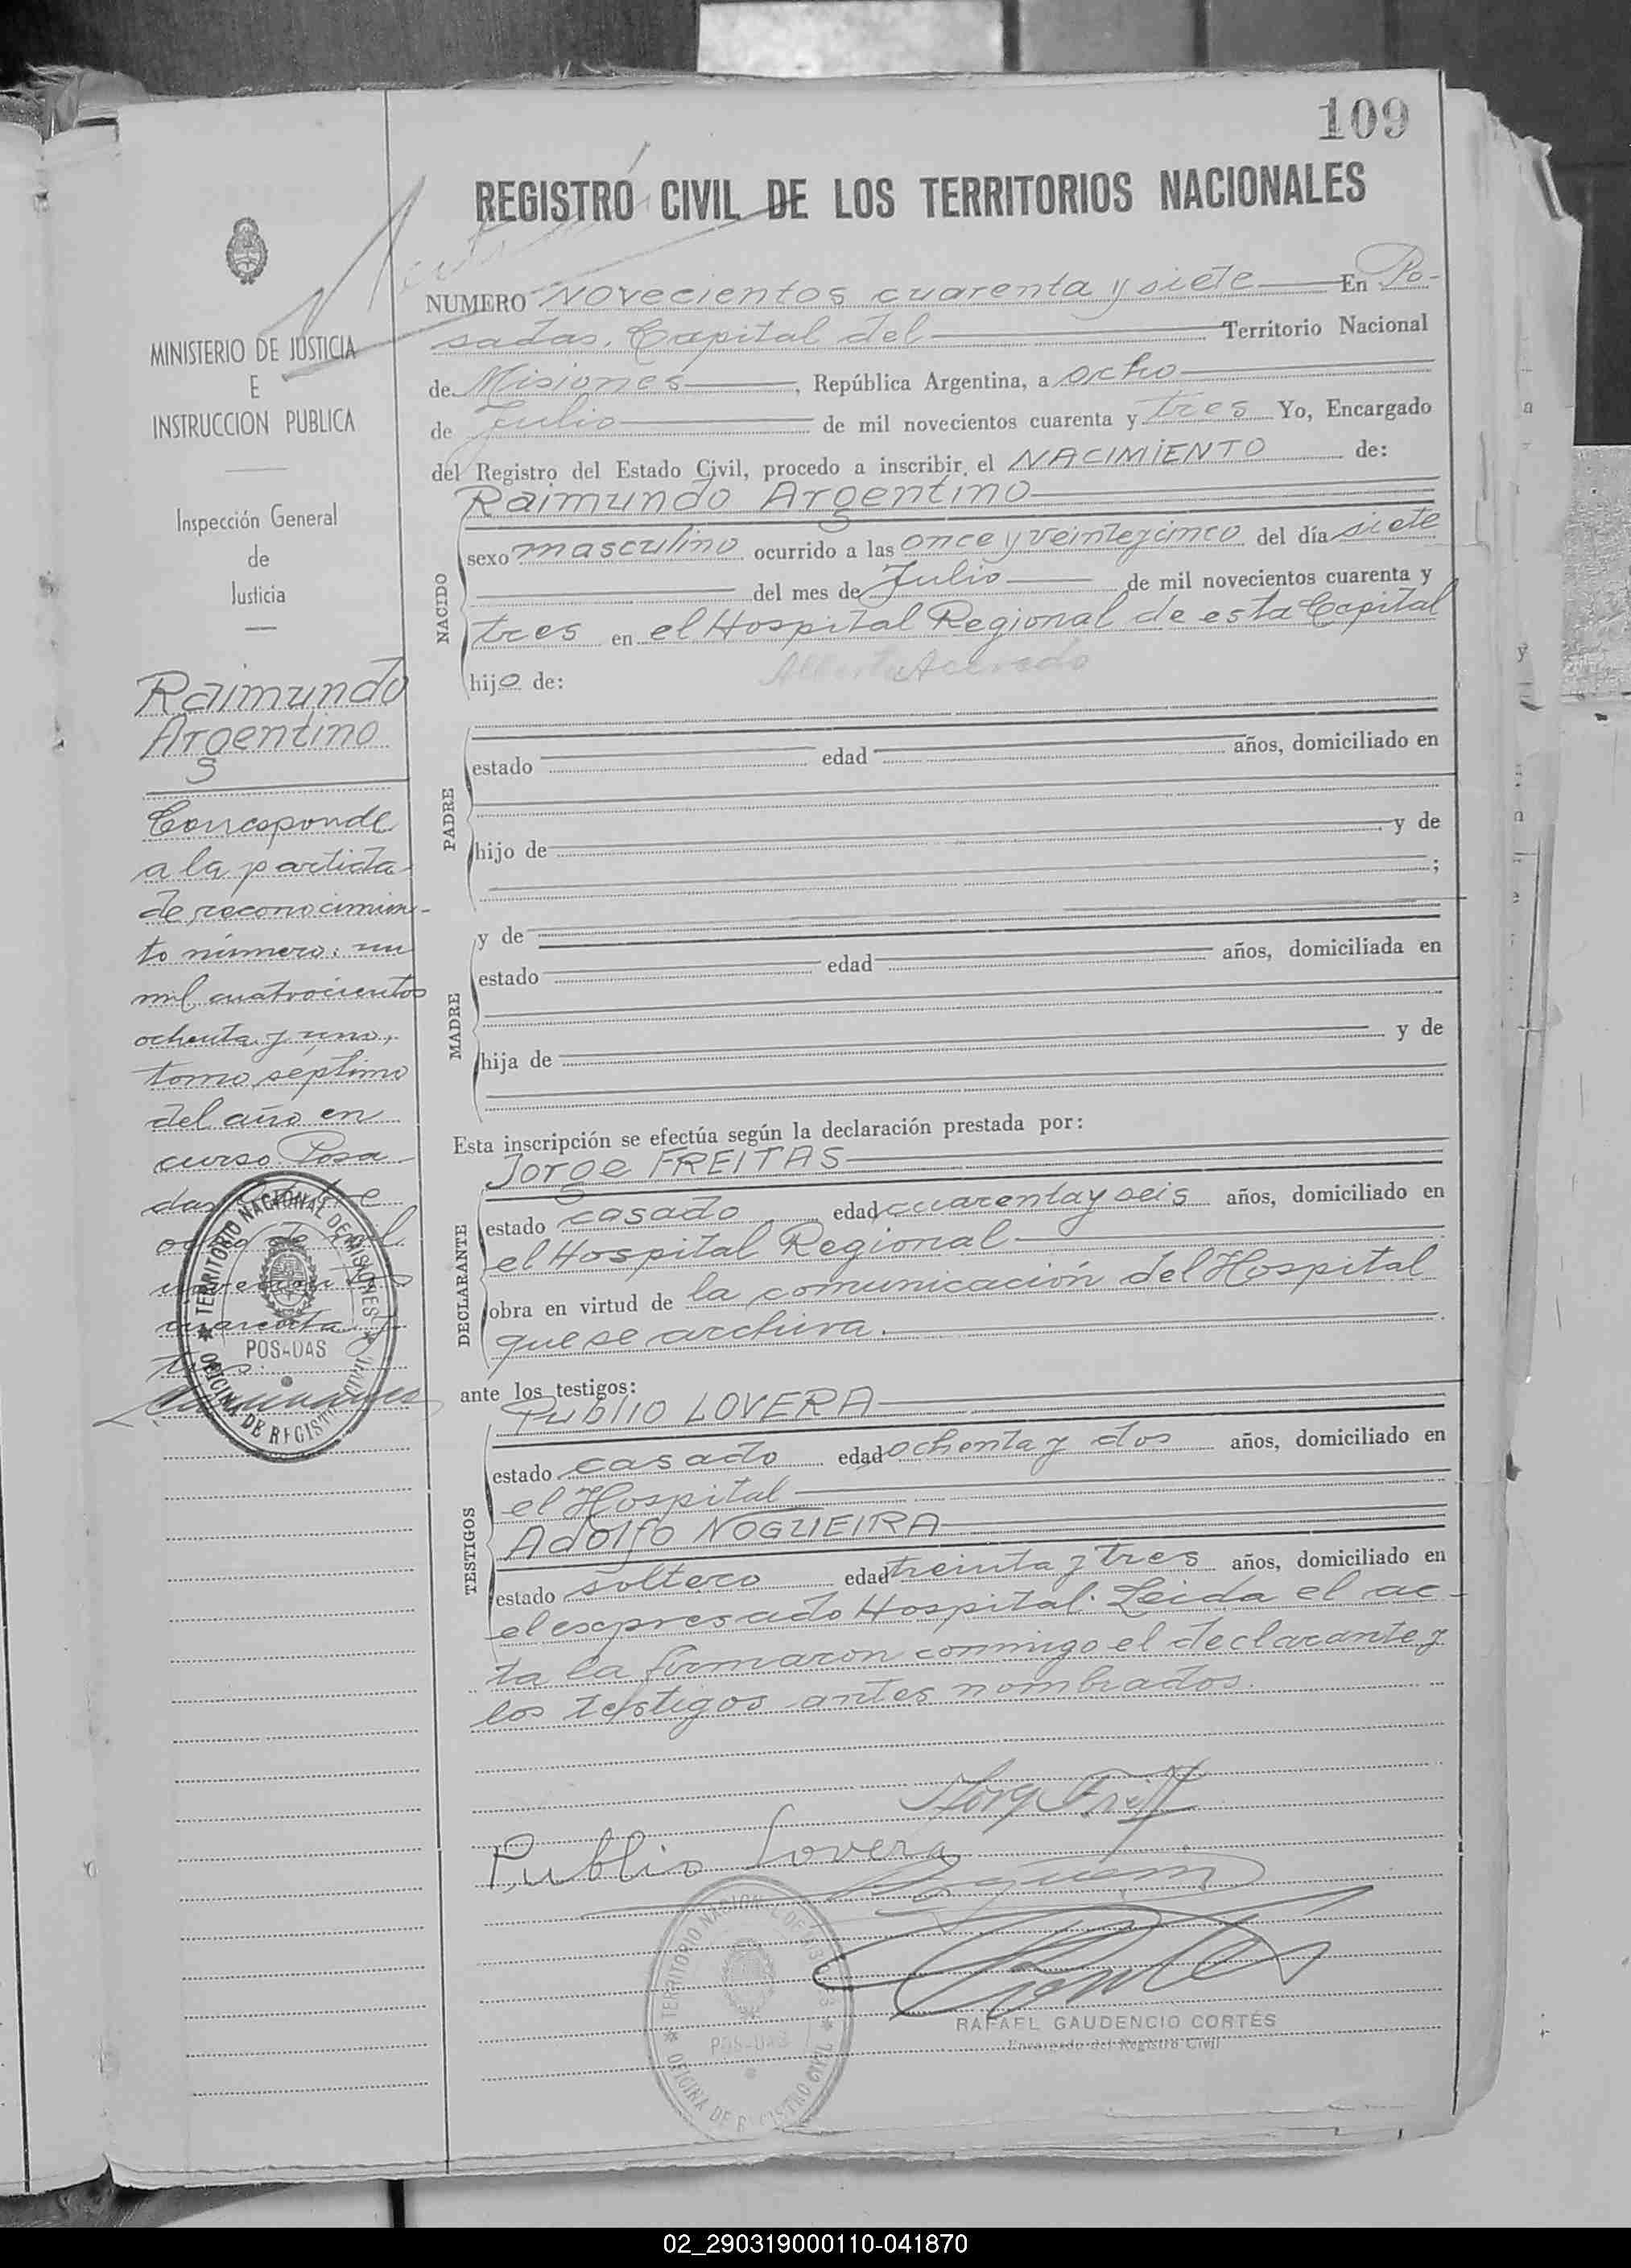 109
REGISTRO CIVIL DE LOS TERRITORIOS NACIONALES
MINISTERIO DE JUSTICIA
E
INSTRUCCION PUBLICA
Inspección General
de
Justicia
Raimundo
Argentino
Corresponde
a la partida
de reconocimien-
to número: un
mil cuatrocientos
ochenta y uno,
tomo séptimo
del año en
curso. Posa
das
cuarenta y
tres.
TERRITORIO NACIONAL DE MISIONES
POSADAS
OFICINA DE REGISTRO CIVIL
NUMERO Novecientos cuarenta y siete En Po-
sadas, Capital del Territorio Nacional
de Misiones, República Argentina, a ocho
de Julio de mil novecientos cuarenta y tres Yo, Encargado
del Registro del Estado Civil, procedo a inscribir el NACIMIENTO de:
NACIDO
Raimundo Argentino
sexo masculino ocurrido a las once y veinteycinco del día siete
del mes de Julio de mil novecientos cuarenta y
tres en el Hospital Regional de esta Capital
hijo de: Acevedo
PADRE
estado edad años, domiciliado en
hijo de y de
;
MADRE
y de
estado edad años, domiciliada en
hija de y de
Esta inscripción se efectúa según la declaración prestada por:
DECLARANTE
Jorge FREITAS
estado casado edad cuarenta y seis años, domiciliado en
el Hospital Regional
obra en virtud de la comunicación del Hospital
que se archiva.
ante los testigos:
TESTIGOS
Publio LOVERA
estado casado edad ochenta y dos años, domiciliado en
el Hospital
Adolfo NOGUEIRA
estado soltero edad treinta y tres años, domiciliado en
el expresado Hospital. Leida el ac-
ta la firmaron conmigo el declarante y
los testigos antes nombrados.
Publio Lovera
TERRITORIO NACIONAL DE MISIONES
POSADAS
OFICINA DE REGISTRO CIVIL
RAFAEL GAUDENCIO CORTÉS
Encargado del Registro Civil
02_290319000110-041870